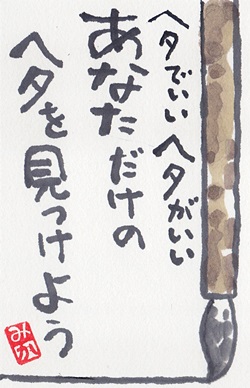 ヘタでいい ヘタがいい
あなただけの
ヘタを見つけよう
みか